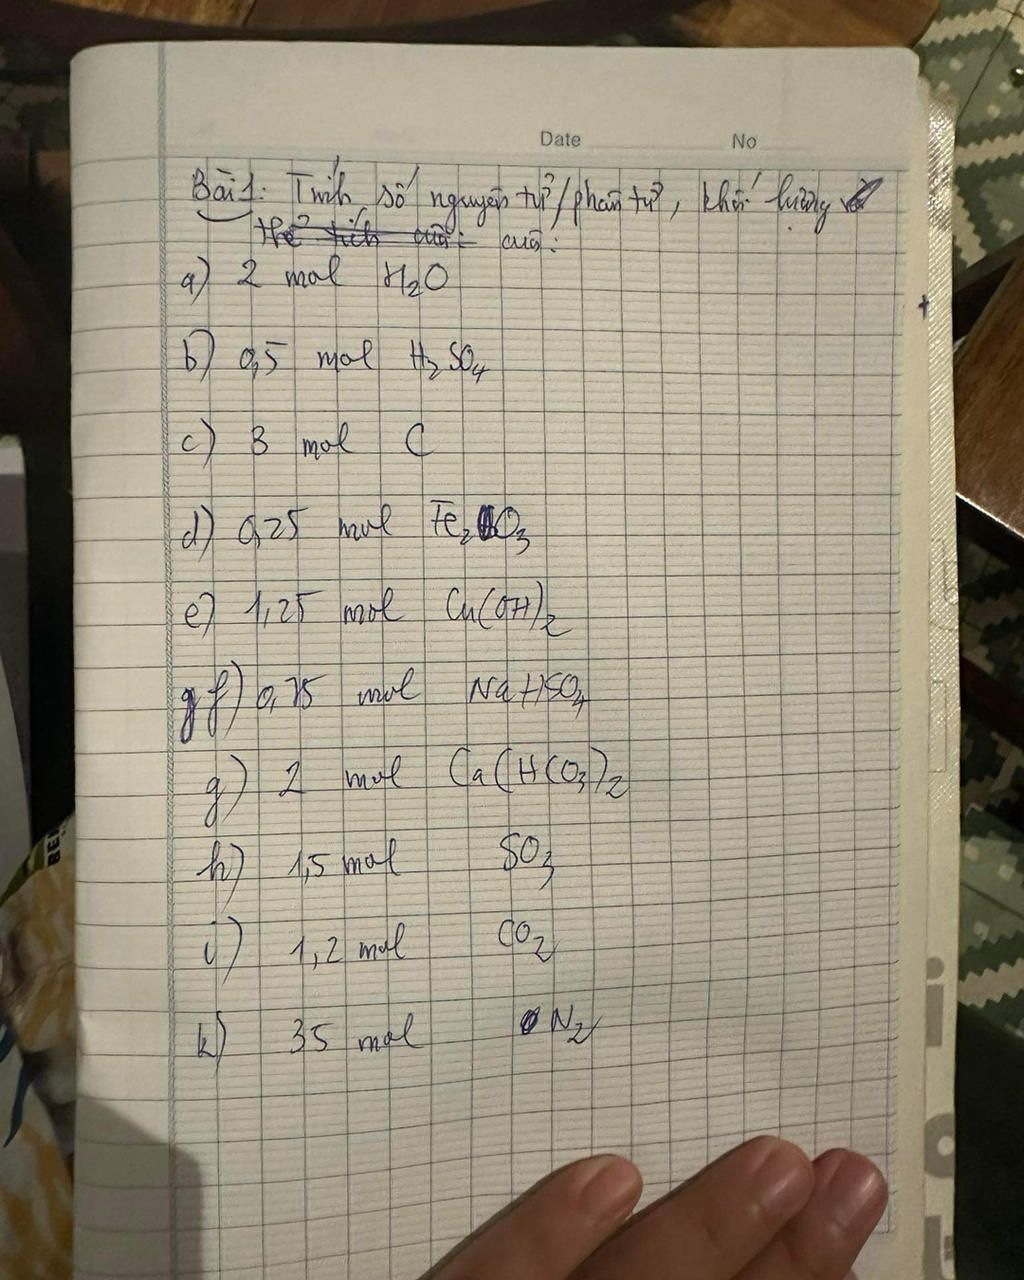 Date No
Bài 1: Tính số nguyên tử/phân tử, khối lượng
thể tích của: của:
a) 2 mol H₂O
b) 0,5 mol H₂SO₄
c) 3 mol C
d) 0,25 mol Fe₂O₃
e) 1,25 mol Cu(OH)₂
f) 0,75 mol NaHSO₄
g) 2 mol Ca(HCO₃)₂
h) 1,5 mol SO₃
i) 1,2 mol CO₂
k) 35 mol N₂